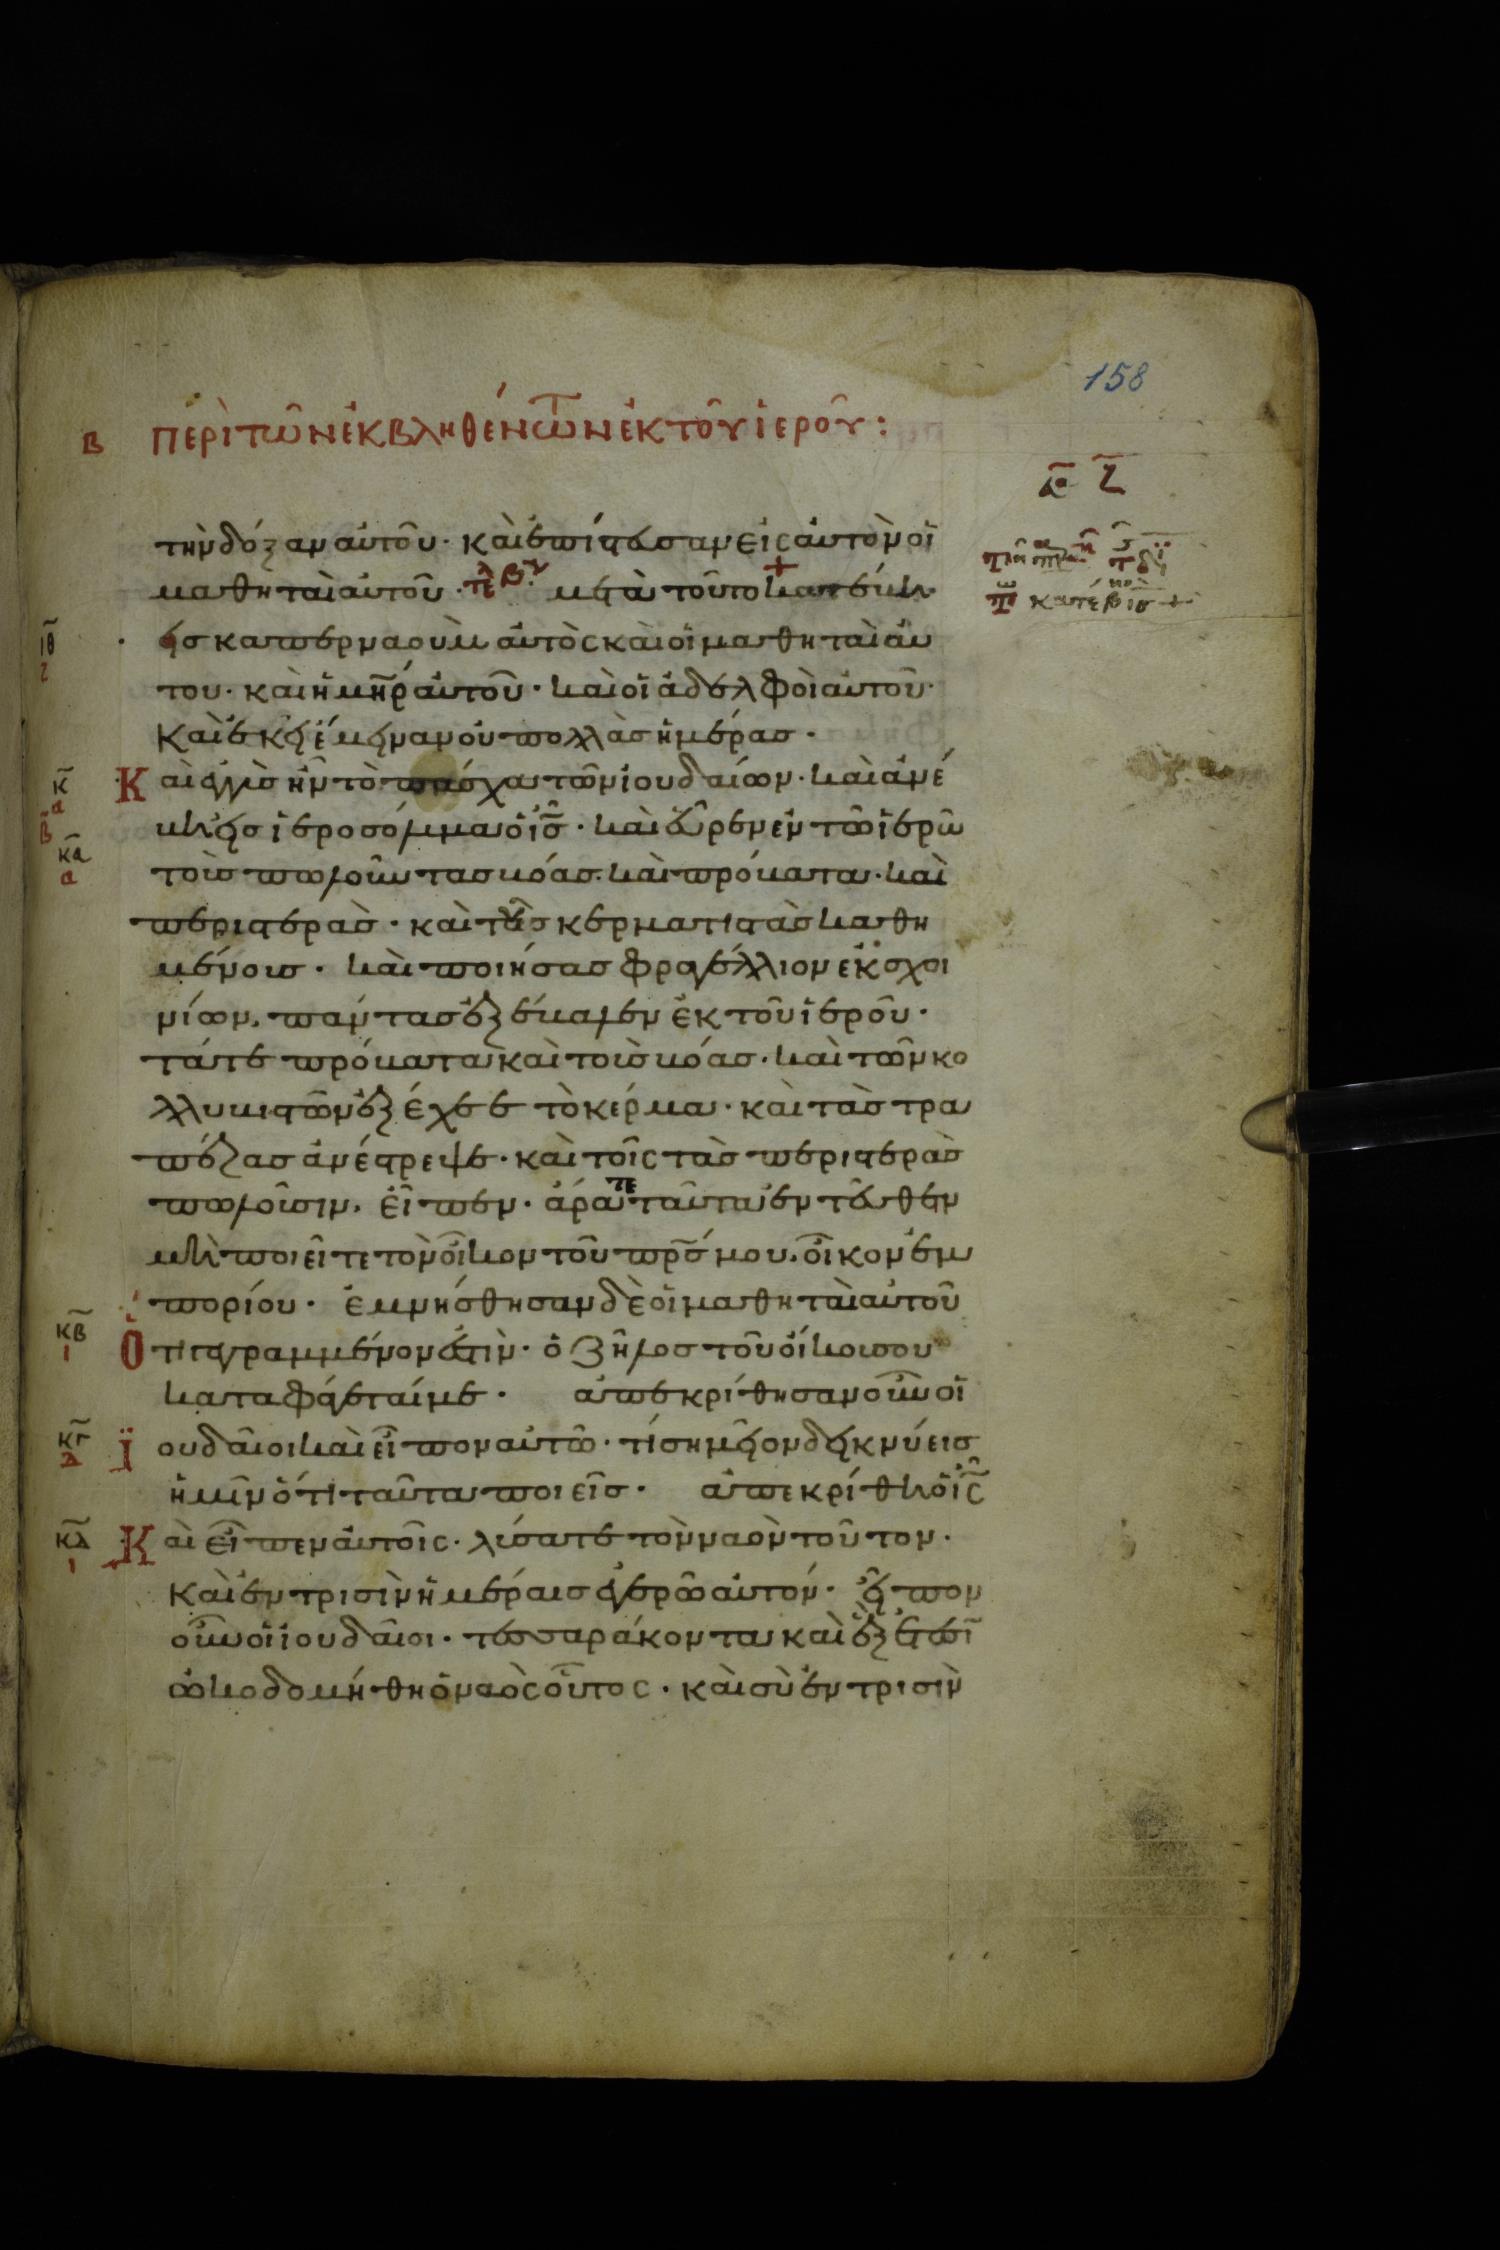 158
β περὶ τῶν ἐκβληθέντων ἐκ τοῦ ἱεροῦ:
ε ζ
τὴν δόξαν αὐτοῦ· καὶ ἐπίστευσαν εἰς αὐτὸν οἱ
μαθηταὶ αὐτοῦ· μετὰ τοῦτο κατέβη
εἰς καπερναοὺμ αὐτὸς καὶ οἱ μαθηταὶ αὐ
του· καὶ ἡ μηρ αὐτοῦ· καὶ οἱ ἀδελφοὶ αὐτοῦ·
ιθ
ζ
καὶ ἐκεῖ ἔμειναν οὐ πολλὰς ἡμέρας·
κ
α
Καὶ ἐγγὺς ἦν τὸ πάσχα τῶν ἰουδαίων· καὶ ἀνέ
βη εἰς ἱεροσόλυμα ὁ ις· καὶ εὗρεν ἐν τῶ ἱερῶ
β
κα
α
τοὺς πωλοῦντας βόας· καὶ πρόβατα· καὶ
περιστεράς· καὶ τοὺς κερματιστὰς καθη
μένους· καὶ ποιήσας φραγέλλιον ἐκ σχοι
νίων, πάντας ἐξέβαλεν ἐκ τοῦ ἱεροῦ·
τά τε πρόβατα καὶ τοὺς βόας· καὶ τῶν κο
λλυβιστῶν ἐξέχεε τὸ κέρμα· καὶ τὰς τρα
πέζας ἀνέστρεψε· καὶ τοῖς τὰς περιστερὰς
πωλοῦσιν, εἶπεν· ἄρατε ταῦτα ἐντεῦθεν
μὴ ποιεῖτε τὸν οἶκον τοῦ πρς μου, οἶκον ἐμ
πορίου· ἐμνήσθησαν δὲ οἱ μαθηταὶ αὐτοῦ
κβ
ι
Ὅτι γεγραμμένον ἐστὶν· ὁ ζῆλος τοῦ οἴκου σου
καταφάγεταί με· ἀπεκρίθησαν οὖν οἱ
κγ
δ
Ἰουδαῖοι καὶ εἶπον αὐτῶ· τί σημεῖον δεικνύεις
ἡμῖν ὅτι ταῦτα ποιεῖς· ἀπεκρίθη ὁ ις
κδ
ι
Καὶ εἶπεν αὐτοῖς· λύσατε τὸν ναὸν τοῦτον·
καὶ ἐν τρισὶν ἡμέραις ἐγερῶ αὐτόν· εἶπον
οὖν οἱ ἰουδαῖοι· τεσσαράκοντα καὶ ἓξ ἔτεσι
ὠκοδομήθη ὁ ναὸς οὗτος· καὶ σὺ ἐν τρισὶν